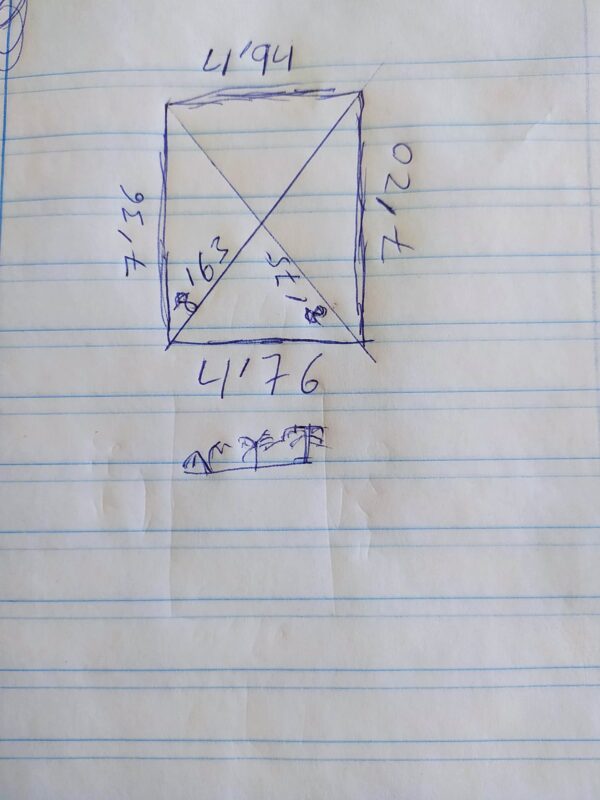 4'94
7'36
7'20
8'63
8'75
4'76